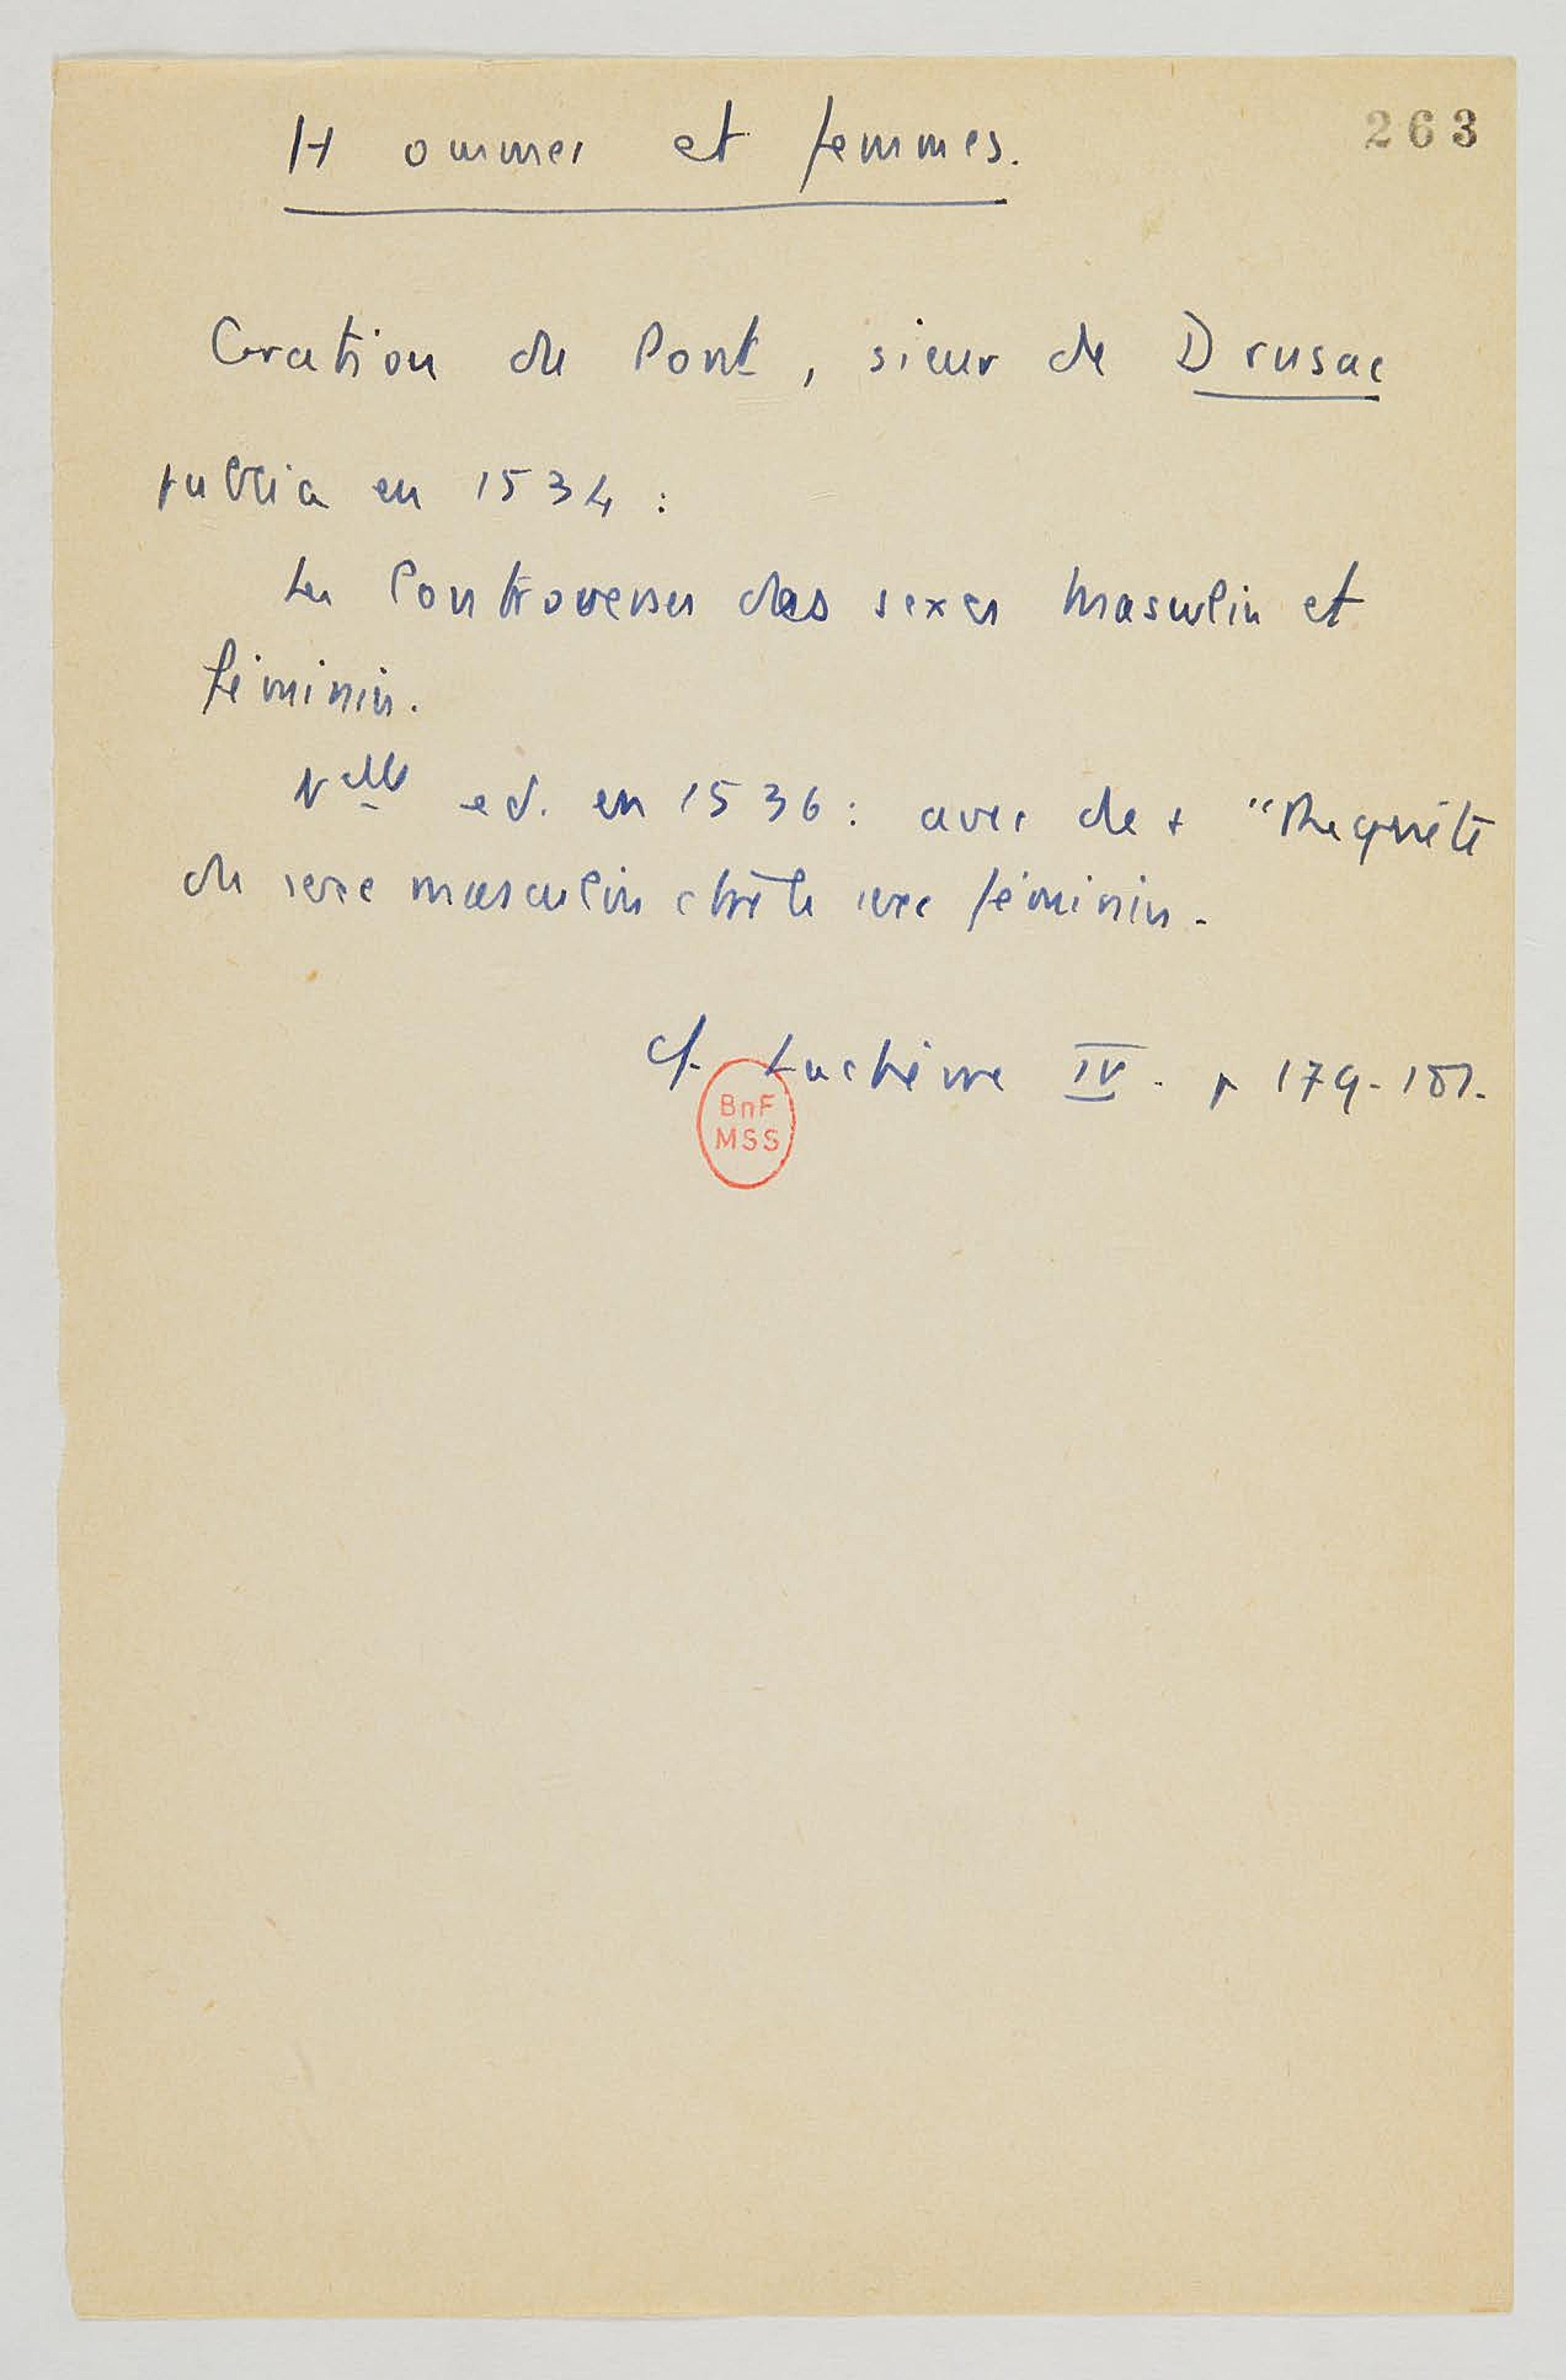 263
Hommes et femmes.
Gratien du Pont, sieur de Drusac
publia en 1534 :
Les Controverses des sexes masculin et
féminin.
Nelle ed. en 1536 : avec de + "Requête
du sexe masculin ctre le sexe féminin.
cf. Lachèvre IV. p 179-181.
BnF
MSS